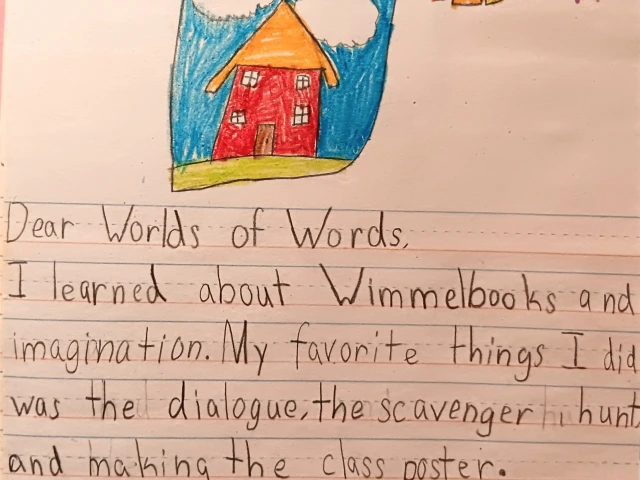 Dear Worlds of Words,
I learned about Wimmelbooks and
imagination. My favorite things I did
was the dialogue, the scavenger hunt,
and making the class poster.